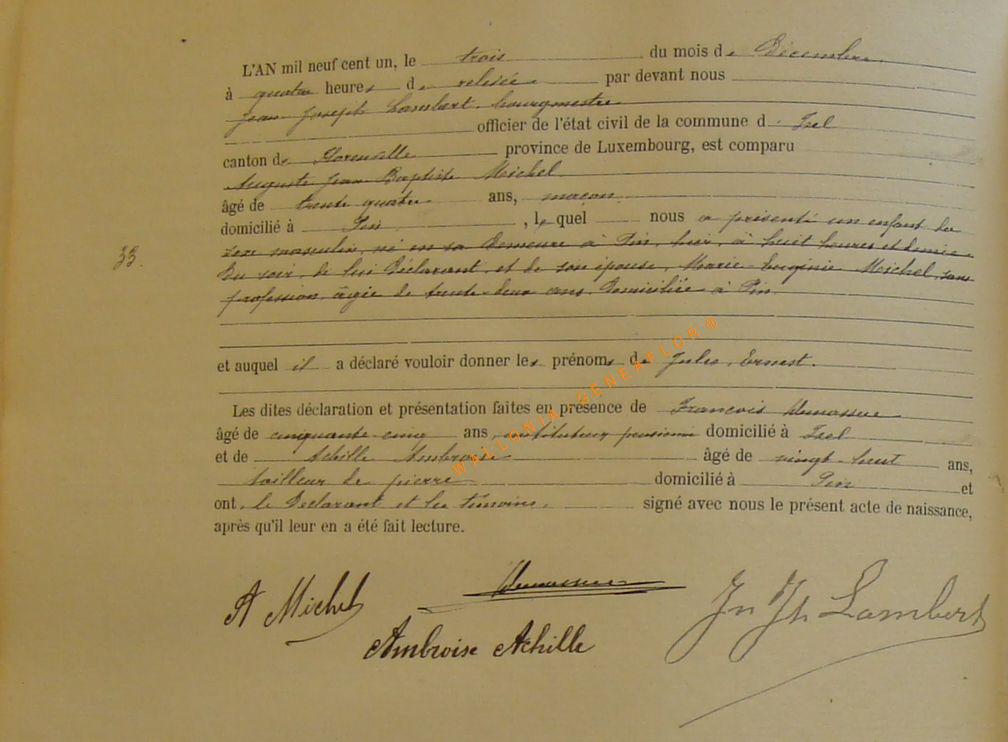 L'AN mil neuf cent un, le trois du mois de Décembre
à quatre heures de relevée par devant nous
Jean Joseph Lambert, bourgmestre
officier de l'état civil de la commune d' Izel
canton de Florenville province de Luxembourg, est comparu
Auguste Jean Baptiste Michel
âgé de trente quatre ans, maçon
domicilié à Pin, lequel nous a présenté un enfant du
33.
sexe masculin, né en sa demeure à Pin, hier, à huit heures et demie
du soir, de lui Déclarant, et de son épouse, Marie-Eugénie Michel, sans
profession, âgée de trente-deux ans, Domiciliée à Pin.
et auquel il a déclaré vouloir donner les prénoms de Jules, Ernest.
Les dites déclaration et présentation faites en présence de François
âgé de cinquante cinq ans, instituteur pensionné domicilié à Izel
et de Achille Ambroise âgé de vingt-huit ans,
tailleur de pierre domicilié à Pin et
ont, le Déclarant et les témoins, signé avec nous le présent acte de naissance,
après qu'il leur en a été fait lecture.
A Michel
Jn Jh Lambert
Ambroise Achille
WALLONIA GENEAFLOR®